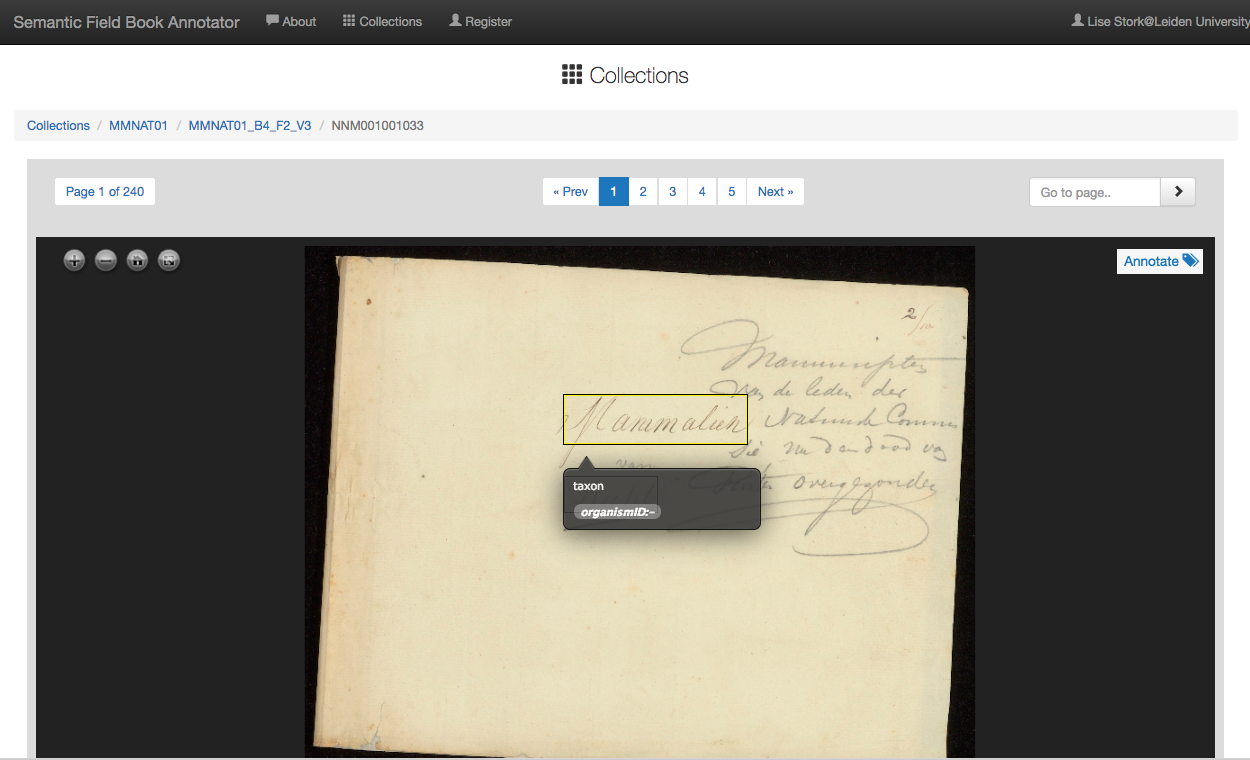 Semantic Field Book Annotator About Collections Register Lise Stork@Leiden University
Collections
Collections / MMNAT01 / MMNAT01_B4_F2_V3 / NNM001001033
Page 1 of 240 « Prev 1 2 3 4 5 Next » Go to page..
Annotate
2/10
Manuscripten
van de leden der
Mammalien
Natuurk Commis
sie na den dood van
van
overgezonden
taxon
organismID:-